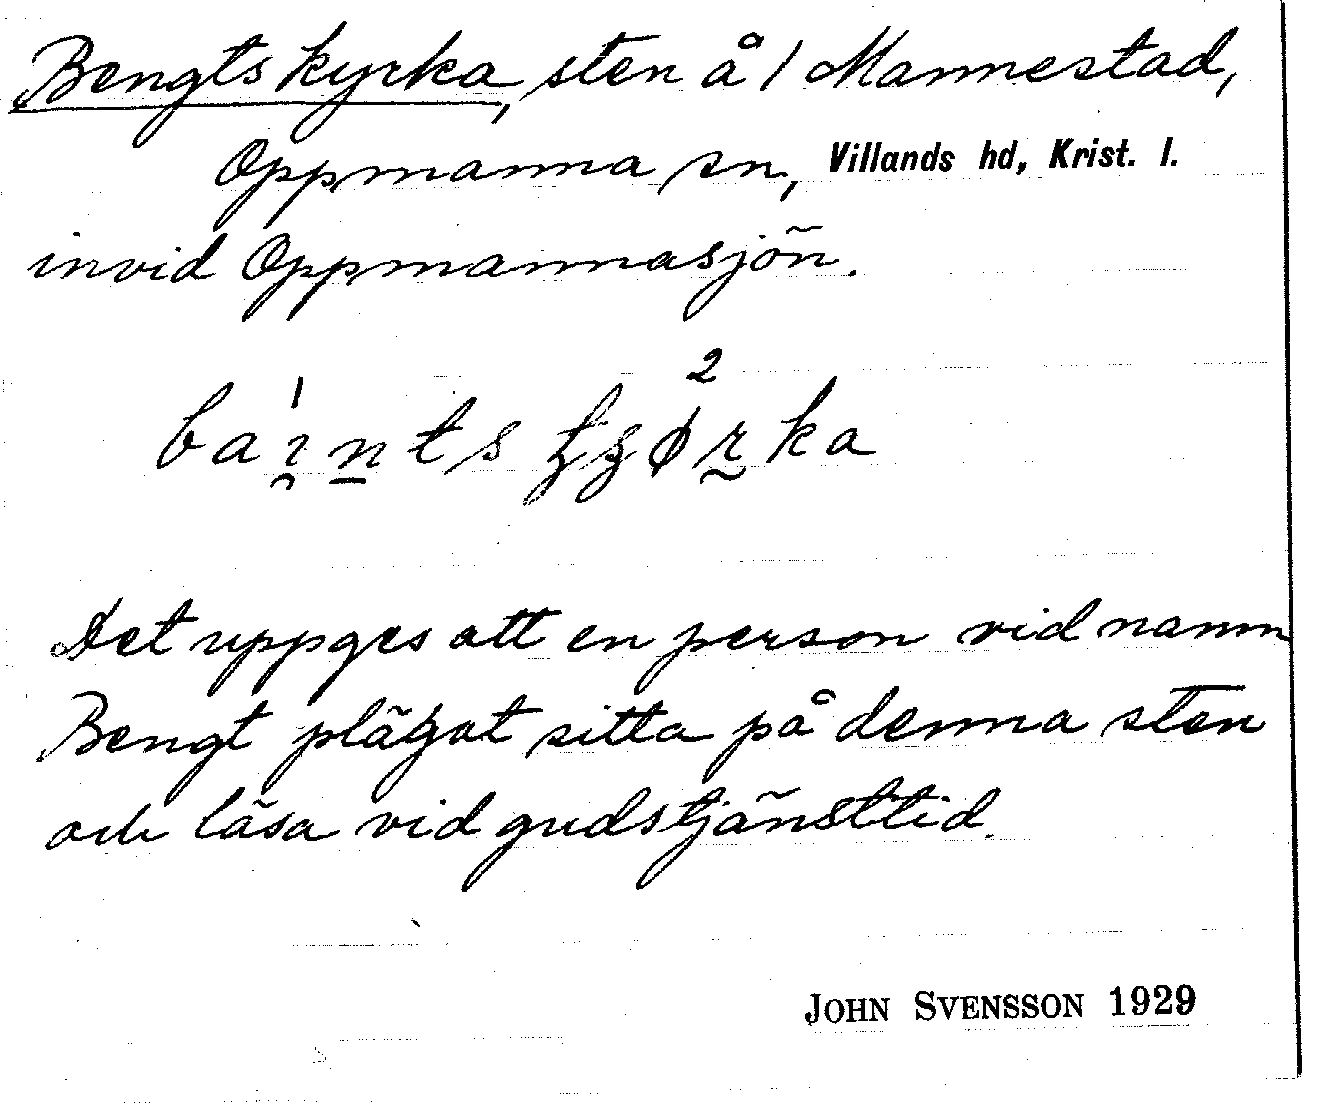 Bengts kyrka, sten å 1 Mannestad,
Oppmanna sn, Villands hd, Krist. l.
invid Oppmannasjön.
Det uppges att en person vid namn
Bengt plägat sitta på denna sten
och läsa vid gudstjänsttid.
JOHN SVENSSON 1929